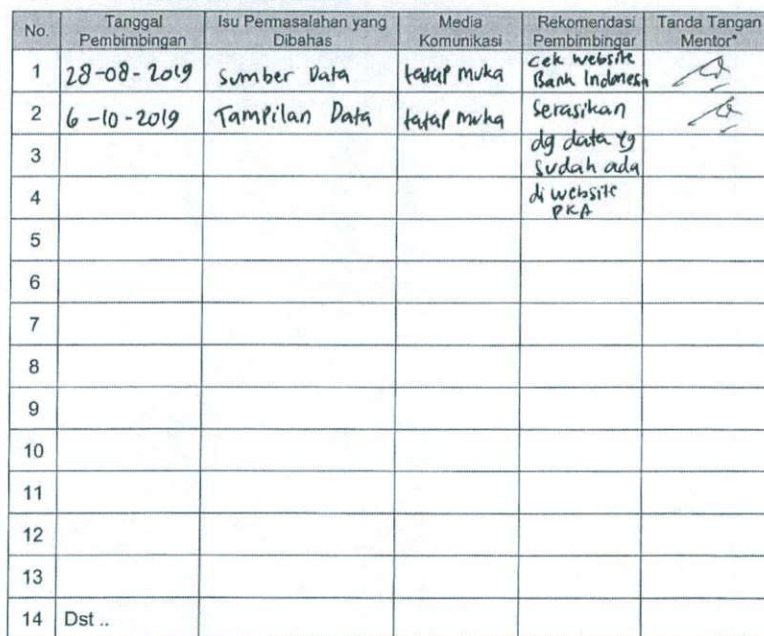 No. Tanggal Pembimbingan Isu Permasalahan yang Dibahas Media Komunikasi Rekomendasi Pembimbingan Tanda Tangan Mentor*
1 28-08-2019 Sumber Data tatap muka cek website Bank Indonesia
2 6-10-2019 Tampilan Data tatap muka Serasikan
3 dg data yg sudah ada
4 di website PKA
5
6
7
8
9
10
11
12
13
14 Dst ..